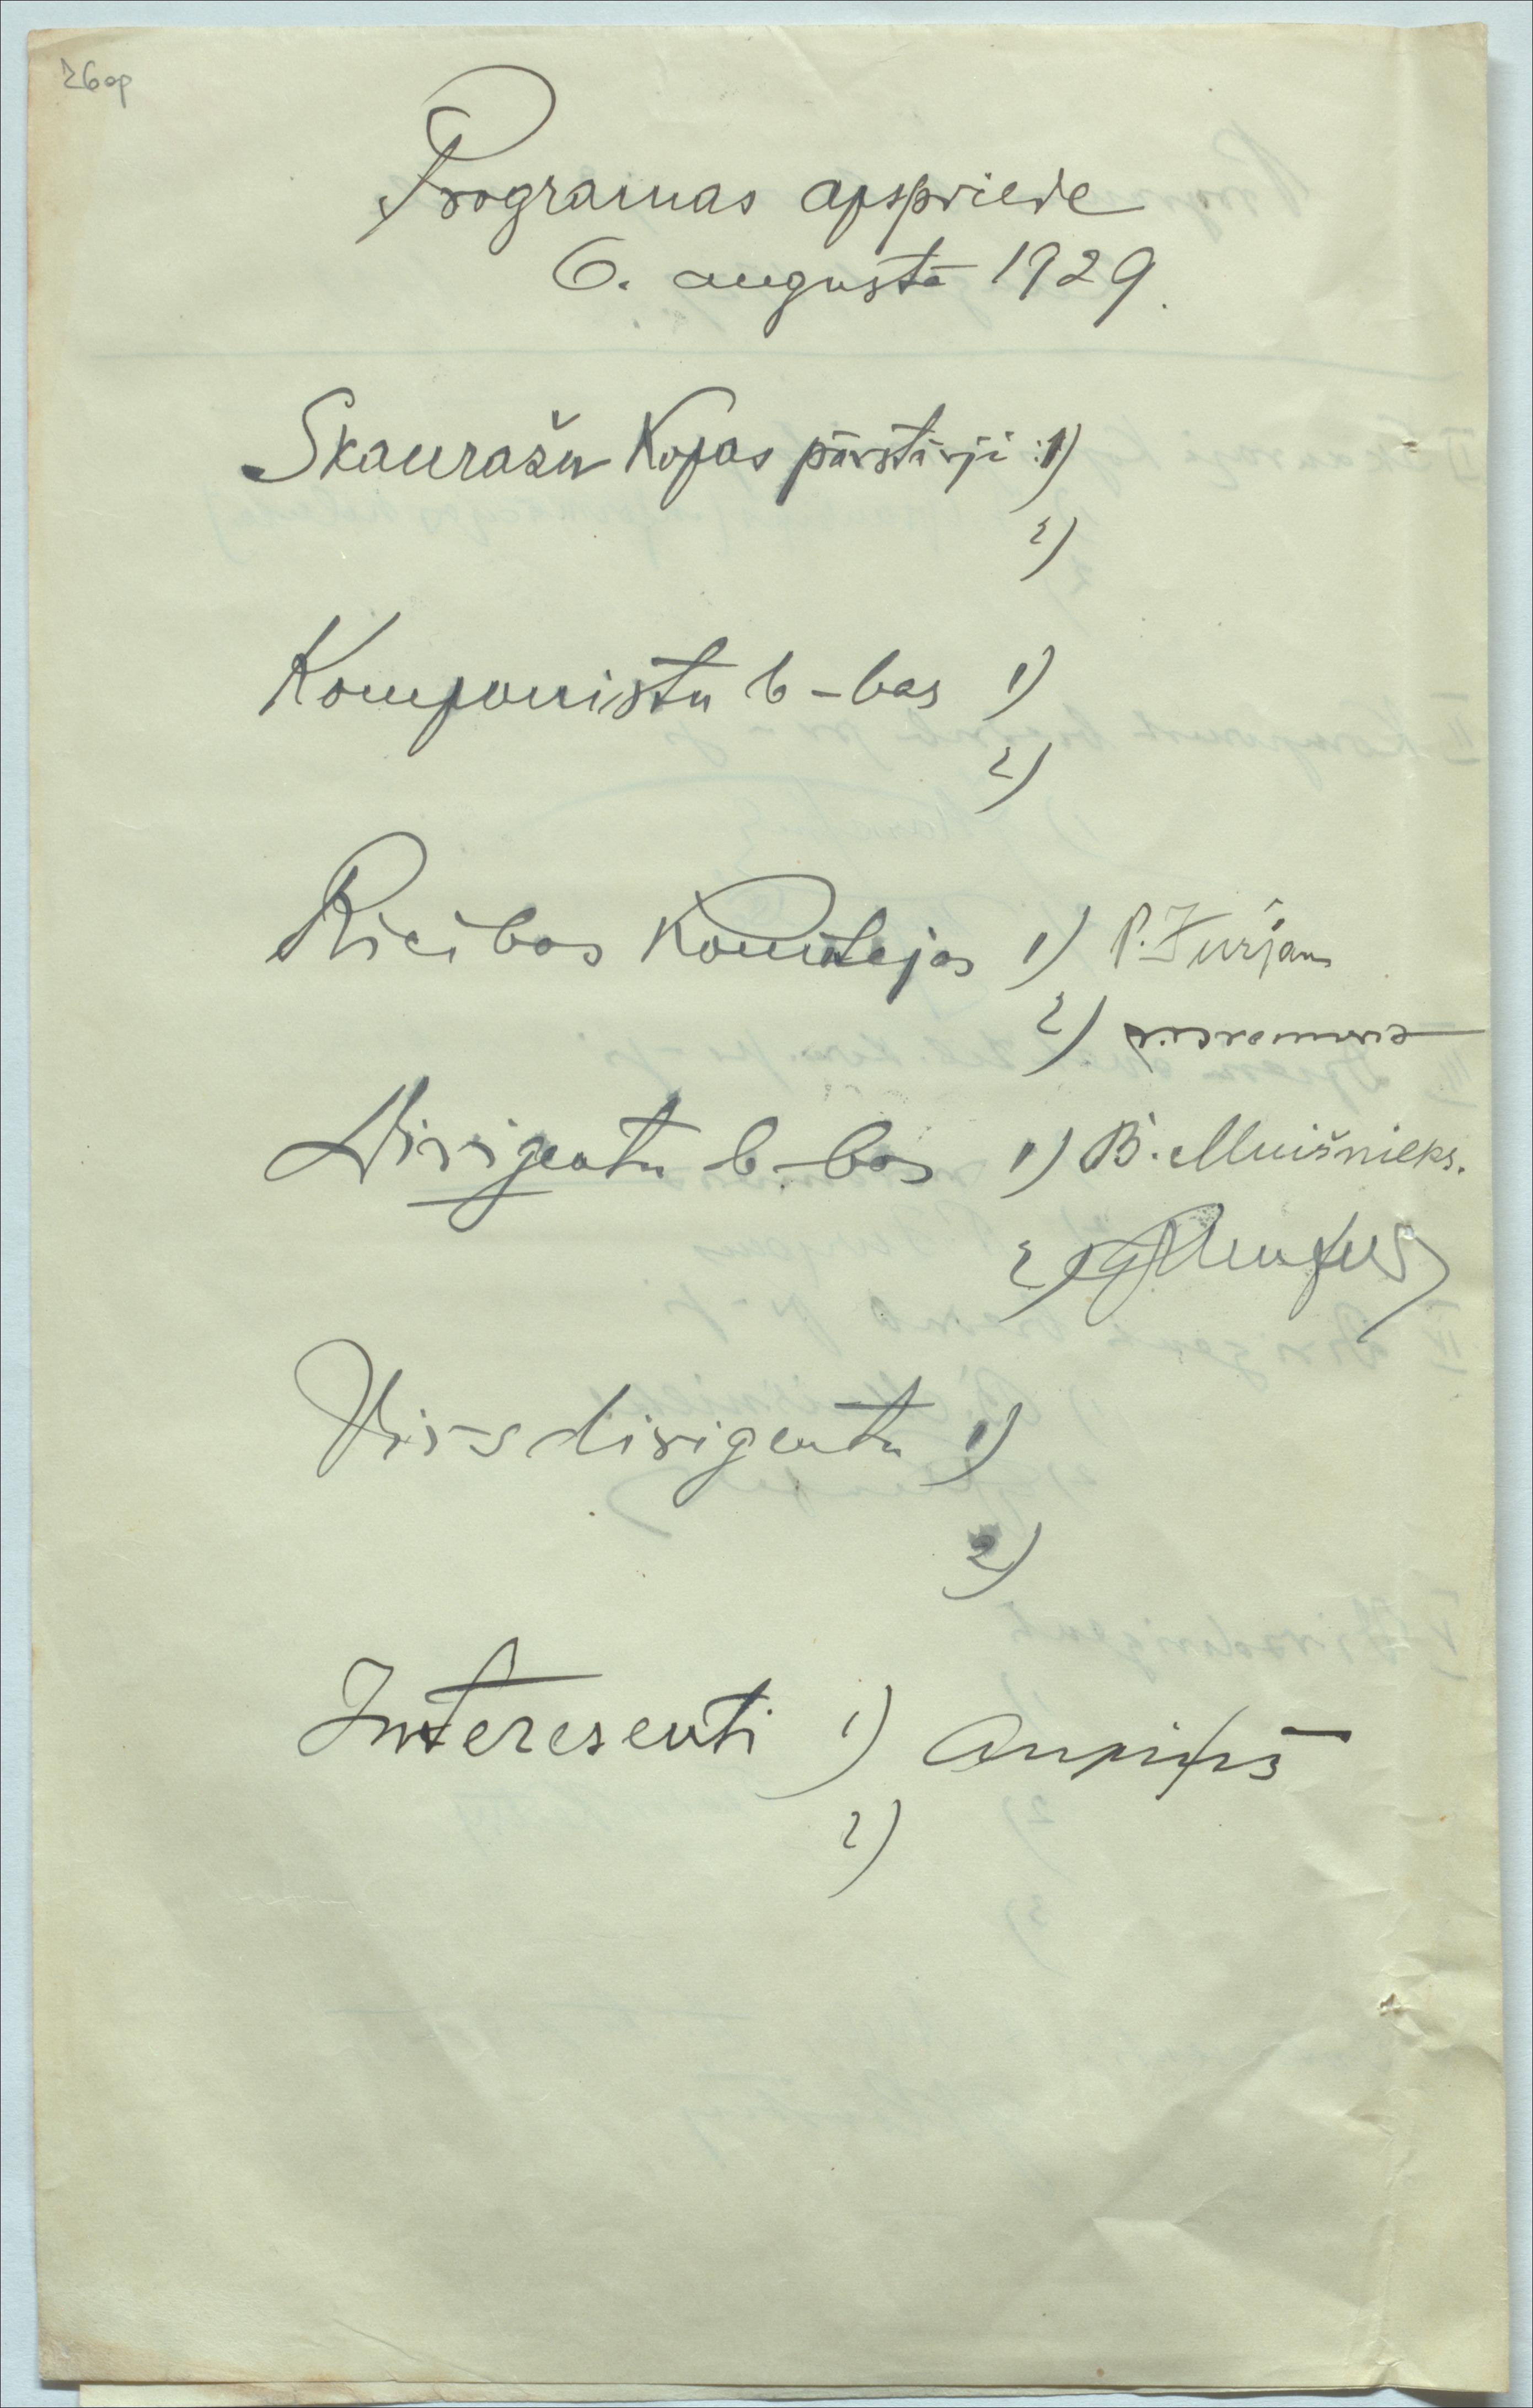 26 op
Programas apspriede
6. augustā 1929.
Skaņražu Kopas pārstāvji: 1)
2)
Komponistu b-bas 1)
2)
Rīcības Komitejas 1) P. Jurjans
2)
Dirigentu b-bas 1) B. Muišnieks.
2)
Virsdirigentu 1)
2)
Interesenti 1)
2)